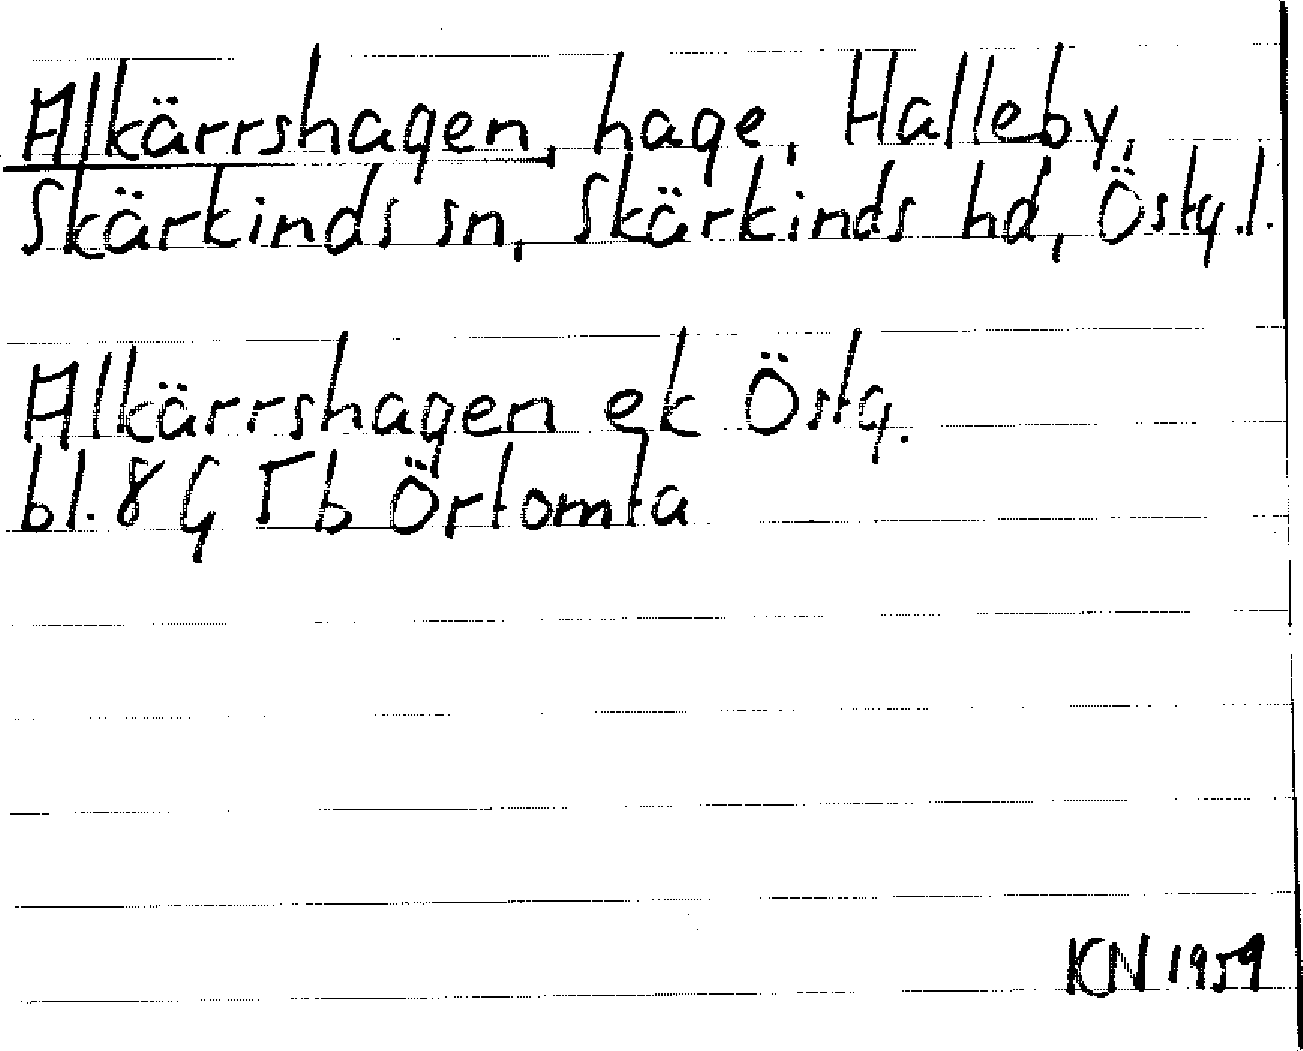 Alkärrshagen, hage, Halleby,
Skärkinds sn, Skärkinds hd, Östg.l.
Alkärrshagen ek Östg.
bl. 8 G 5b Örtomta
KN 1959